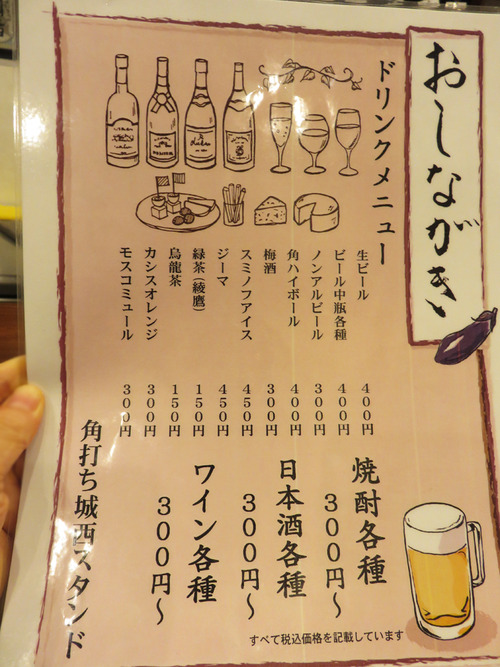 おしながき
ドリンクメニュー
生ビール 400円
ビール中瓶各種 400円
ノンアルビール 300円
角ハイボール 400円
梅酒 300円
スミノフアイス 450円
ジーマ 450円
緑茶(綾鷹) 150円
烏龍茶 150円
カシスオレンジ 300円
モスコミュール 300円
焼酎各種
300円～
日本酒各種
300円～
ワイン各種
300円～
角打ち城西スタンド
すべて税込価格を記載しています